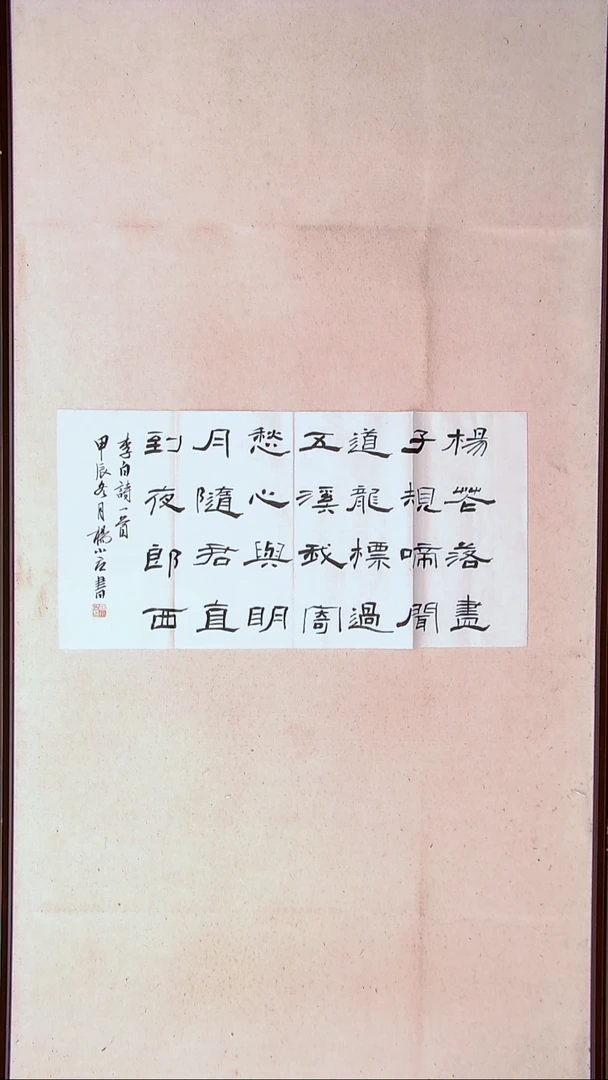 楊花落盡
子規啼聞
道龍標過
五溪我寄
愁心與明
月隨君直
到夜郎西
李白詩一首
甲辰冬月楊小石書